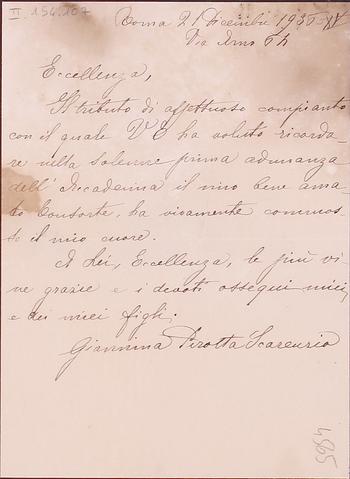 II 154.107
Roma 21 Dicembre 1936-XV
Via Arno 64
Eccellenza,
Il tributo di affettuoso compianto
con il quale V. E. ha voluto ricorda-
re nella solenne prima adunanza
dell'Accademia il mio bene ama-
to Consorte, ha vivamente commos-
so il mio cuore.
A Lei, Eccellenza, le più vi-
ve grazie e i devoti ossequi miei,
e dei miei figli.
Giannina Pirotta Scarenzio